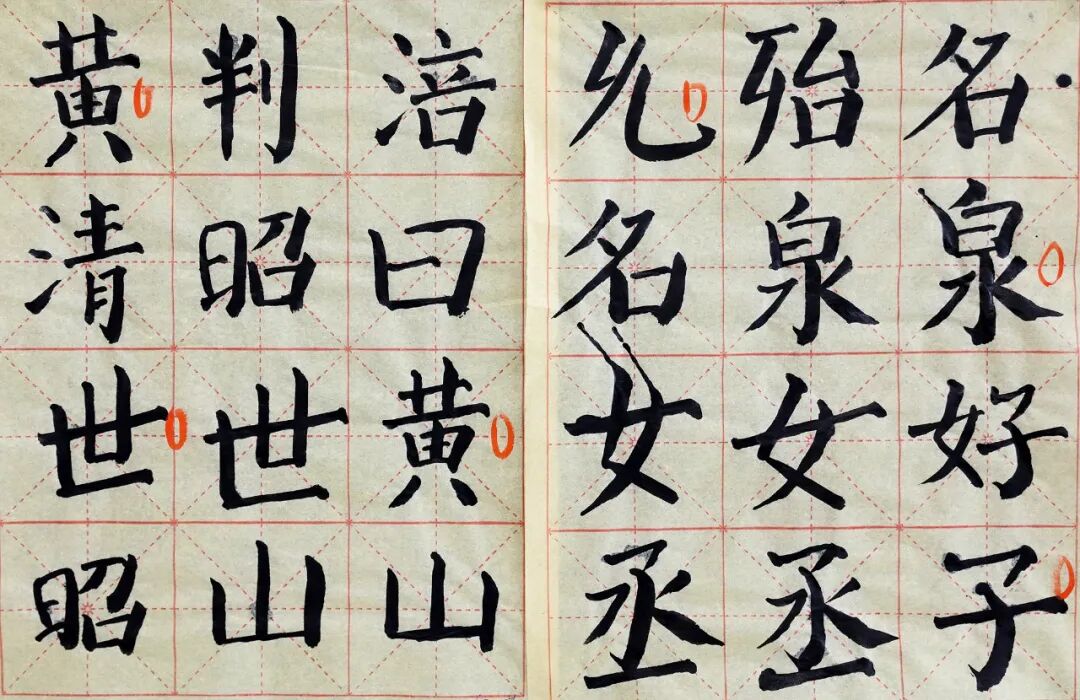 名泉好子
殆泉女丞
名女丞
涪曰黄山
判昭世山
黄清世昭